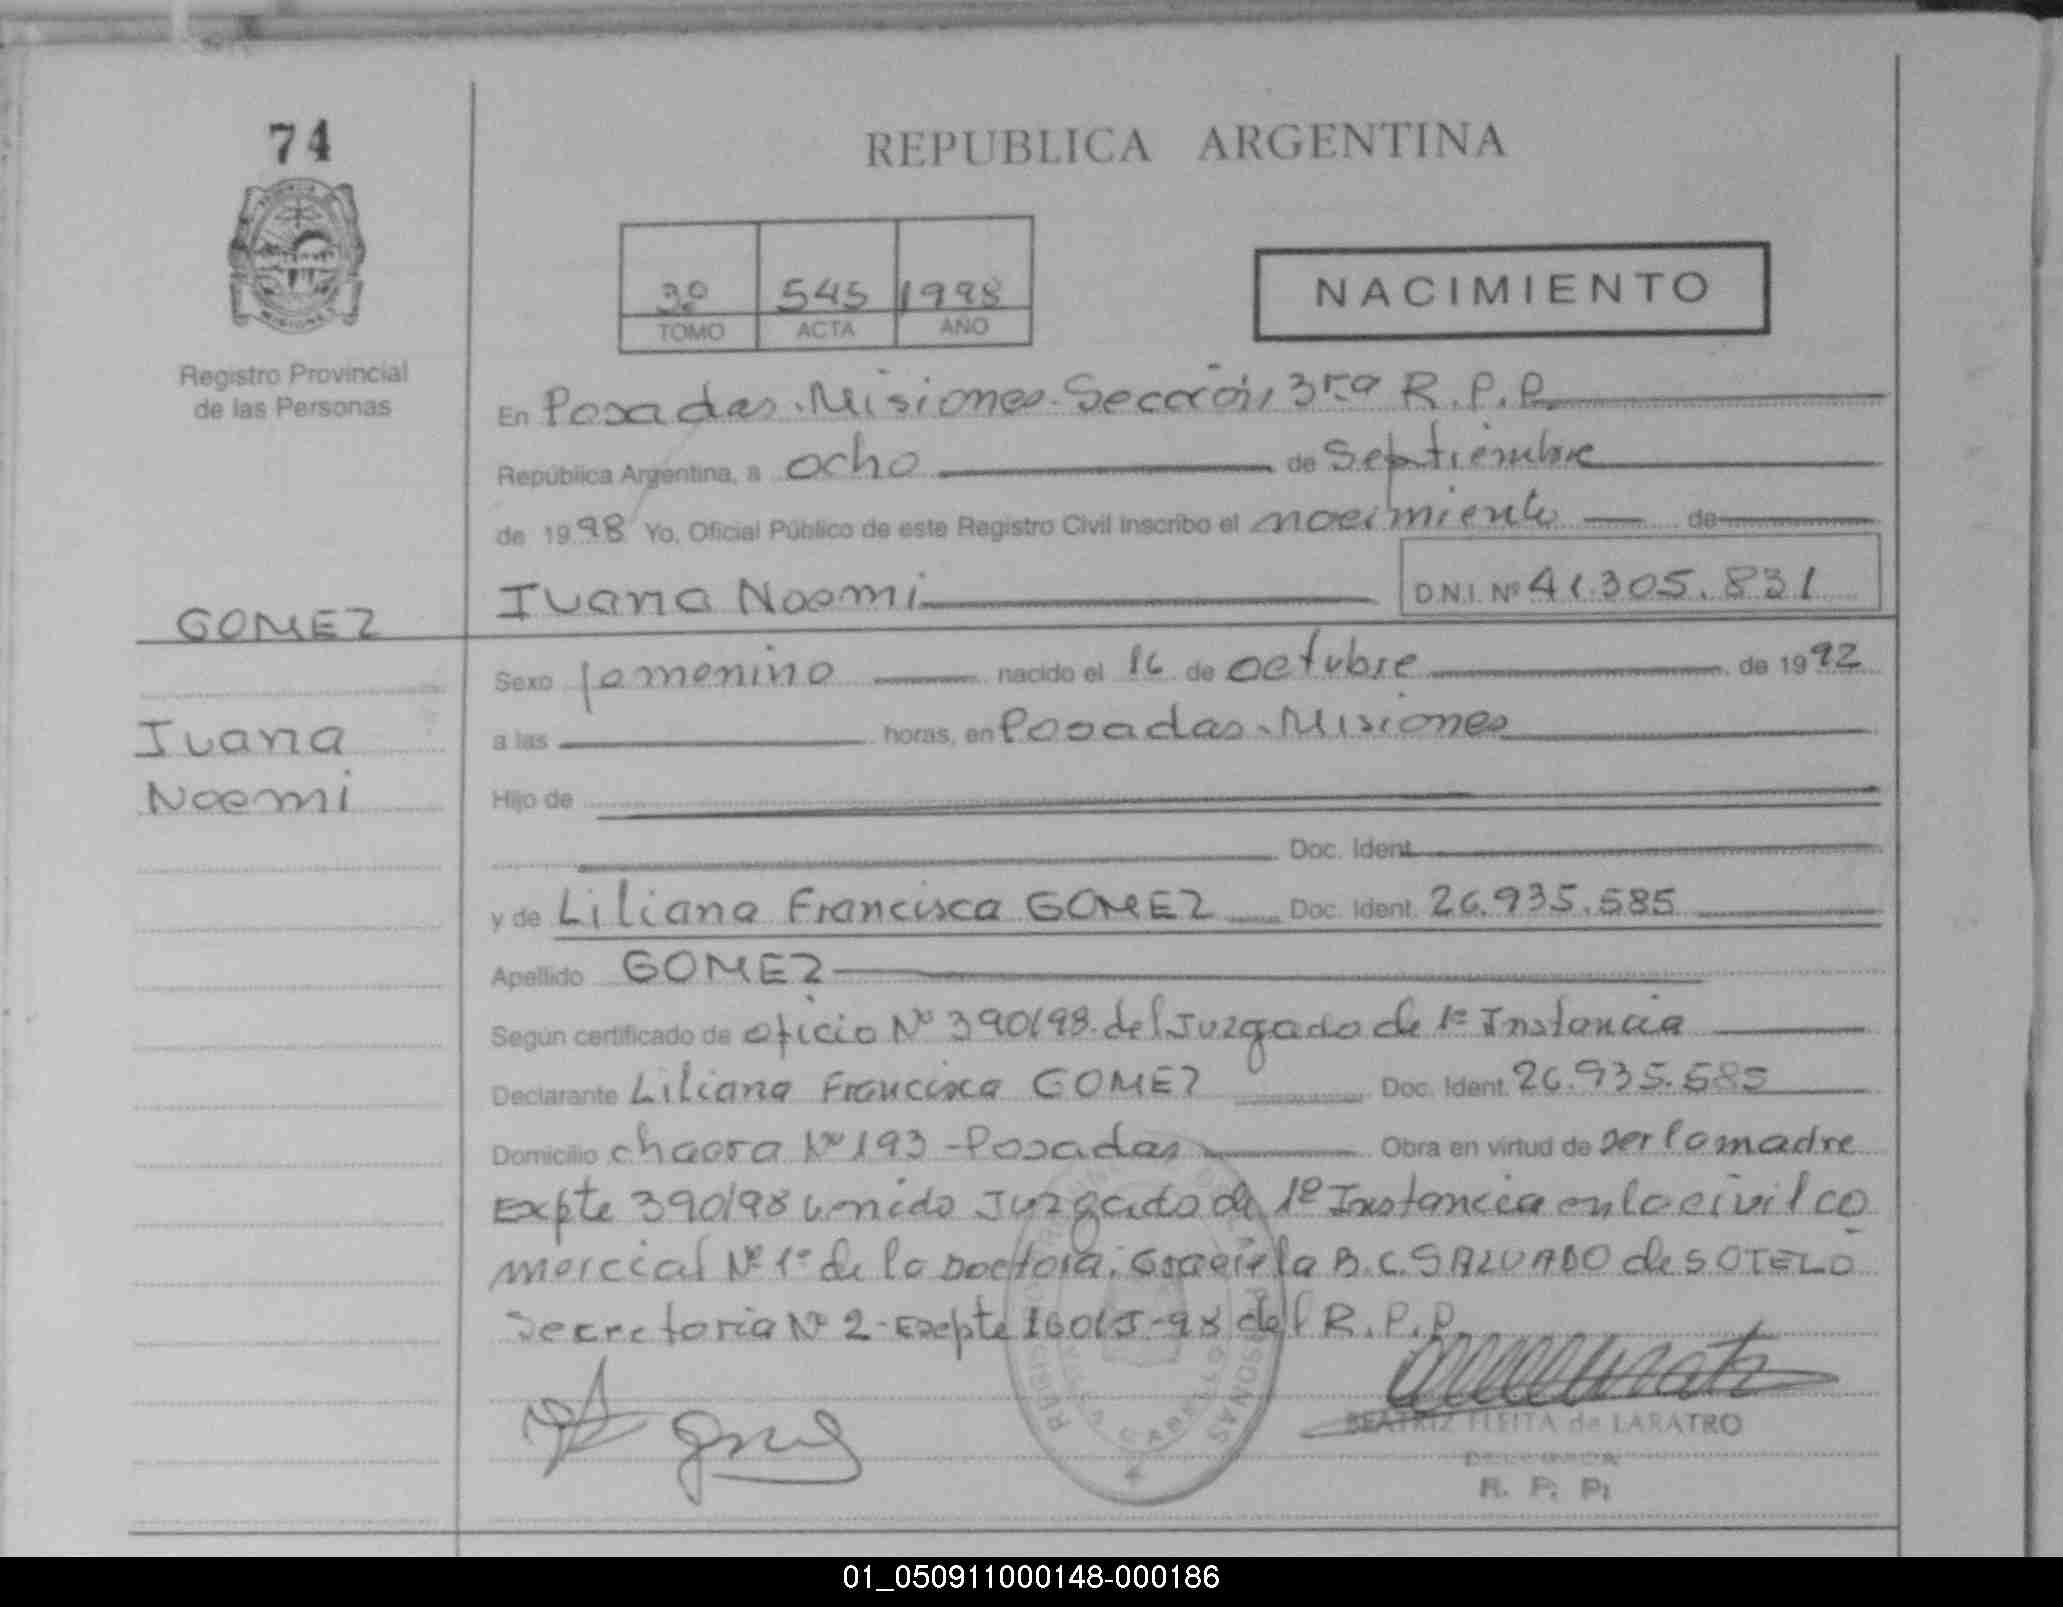 74
REPUBLICA ARGENTINA
3º 545 1998
TOMO ACTA AÑO
NACIMIENTO
Registro Provincial
de las Personas
En Posadas-Misiones-Sección 3ra R.P.P.
República Argentina, a ocho de Septiembre
de 1998 Yo, Oficial Público de este Registro Civil inscribo el nacimiento de
Ivana Noemi D.N.I. Nº 41.305.831
GOMEZ
Ivana
Noemi
Sexo femenino nacido el 16 de octubre de 1992
a las horas, en Posadas-Misiones
Hijo de
Doc. Ident.
y de Liliana Francisca GOMEZ Doc. Ident. 26.935.585
Apellido GOMEZ
Según certificado de oficio Nº 390/98 del Juzgado de 1ª Instancia
Declarante Liliana Francisca GOMEZ Doc. Ident. 26.935.585
Domicilio chacra Nº 193 - Posadas Obra en virtud de ser la madre
Expte 390/98 Juzgado de 1º Instancia en lo civil co
mercial Nº 1º de la Doctora: Graciela B.C. SALVADO de SOTELO
Secretaria Nº 2 - Expte 160/J-98 del R.P.P.
BEATRIZ FLEITA de LARATRO
DELEGADA
R. P. P.
01_050911000148-000186